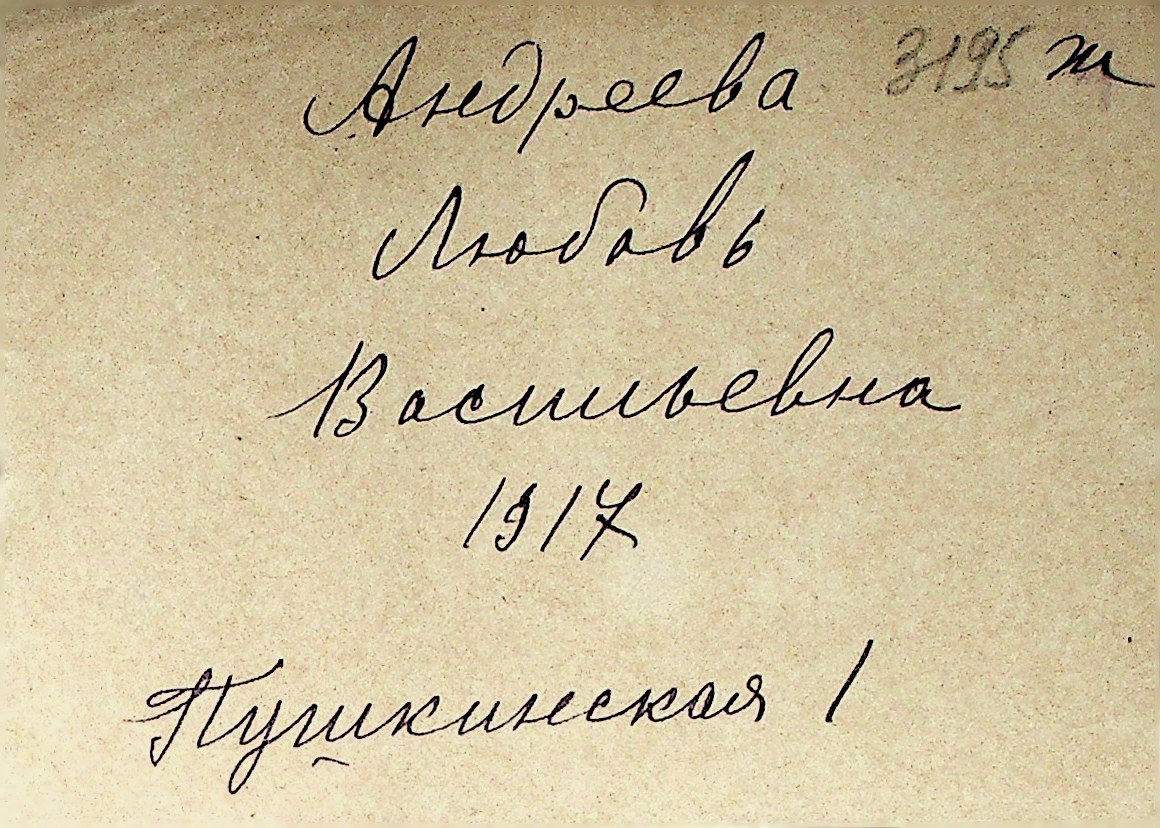 Андреева 3195 ж
Любовь
Васильевна
1917
Пушкинская 1